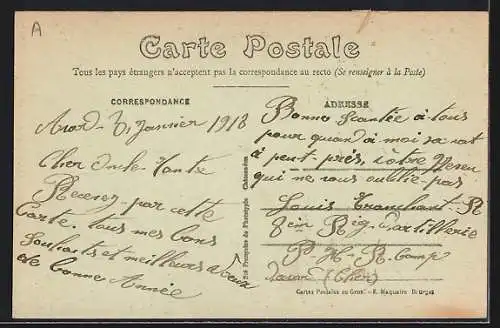 A
Carte Postale
Tous les pays étrangers n'acceptent pas la correspondance au recto (Se renseigner à la Poste)
CORRESPONDANCE
Avord 3, Janvier 1918
Cher Oncle Tante
Recevez par cette
Carte. tous mes bons
Souhaits et meilleurs vœux
de bonne Année
Sté Française de Phototypie
ADRESSE
Bonne Santée à tous
pour quand à moi sa vat
à peut près, votre Neveu
qui ne vous oublie pas
Louis Tranchant
Rég d'artillerie
P. H. R. Camp
(Cher)
Cartes Postales en Gros - E. Maquaire Bourges